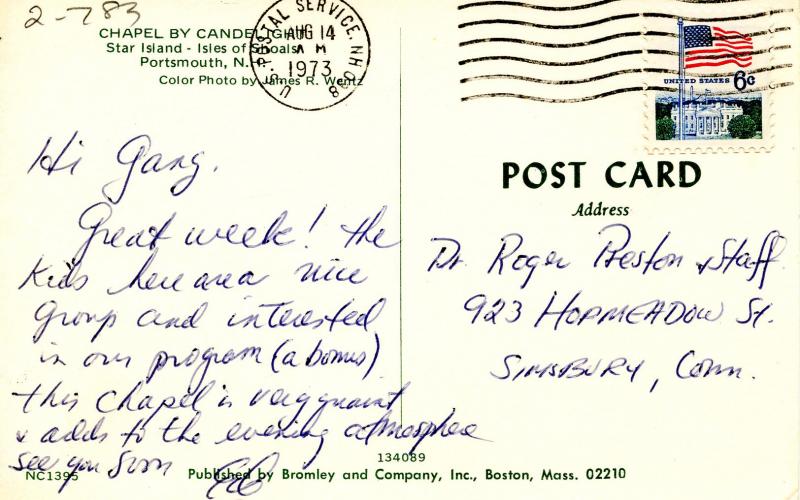 2-783
CHAPEL BY CANDELIGHT
Star Island - Isles of Shoals
Portsmouth, N.H.
Color Photo by James R. Wentz
U.S. POSTAL SERVICE, NH 038
AUG 14
AM
1973
UNITED STATES 6c
Hi Gang.
Great week! the
kids here are a nice
group and interested
in our program (a bonus)
this chapel is very quaint
& adds to the evening atmosphere
see you soon
Ed
POST CARD
Address
Dr. Roger Preston & Staff
923 HOPMEADOW St.
SIMSBURY, Conn.
134089
NC1395
Published by Bromley and Company, Inc., Boston, Mass. 02210